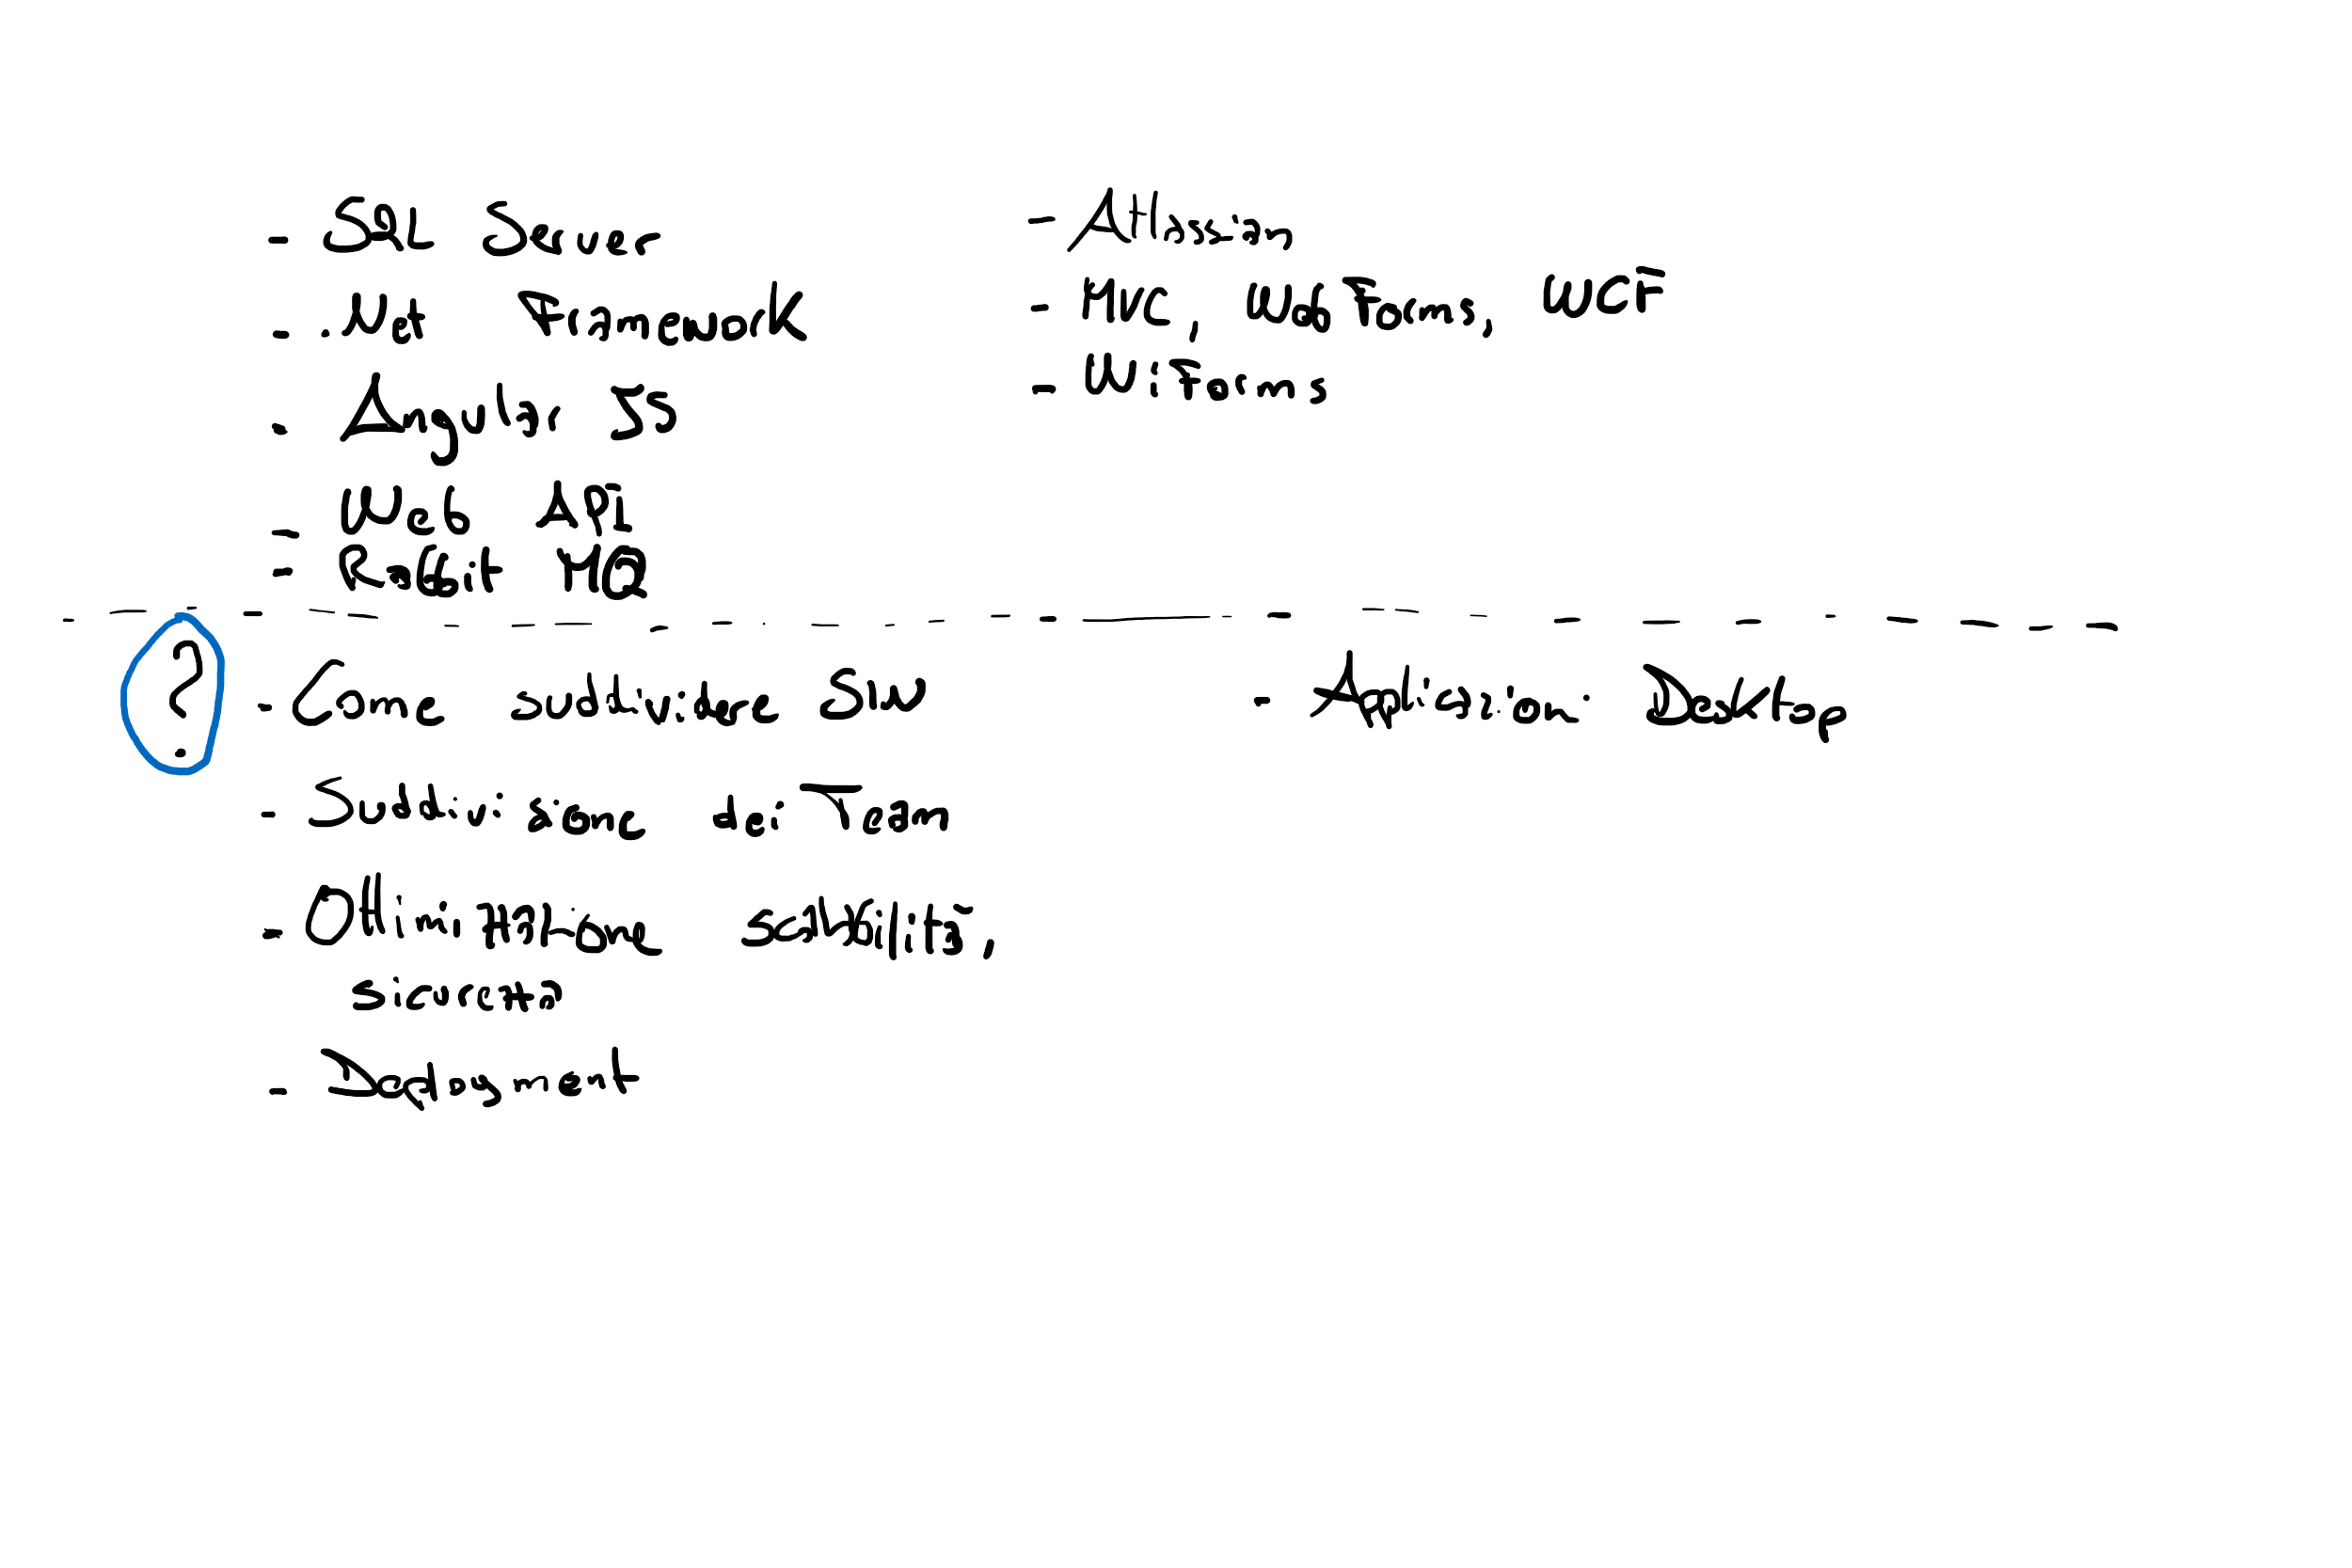 - SQL Server
- .Net Framework
- Angular JS
- Web API
- Rabbit MQ
- Atlassian
- MVC, WebForms, WCF
- WiForms
?
- Come suddividere SW
- Suddivisione dei Team
- Ottimizzazione scalabilità,
sicurezza
- Deployment
- Applicazioni Desktop